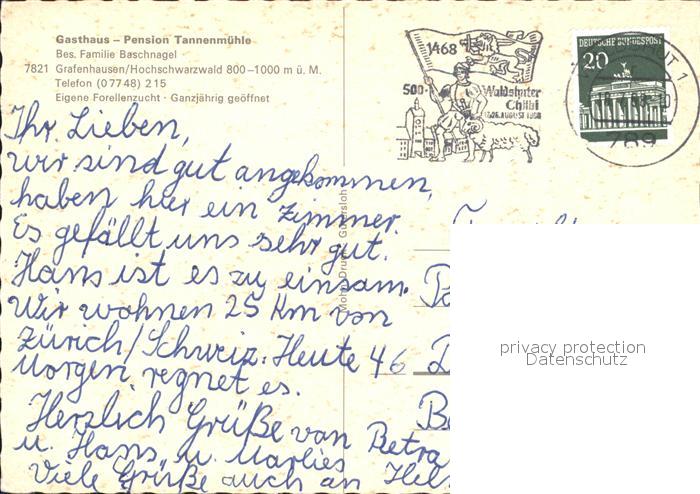 Gasthaus – Pension Tannenmühle
Bes. Familie Baschnagel
7821 Grafenhausen/Hochschwarzwald 800–1000 m ü. M.
Telefon (0 77 48) 2 15
Eigene Forellenzucht · Ganzjährig geöffnet
1468
500
Waldshuter
Chilbi
DEUTSCHE BUNDESPOST
20
1
789
Ihr Lieben,
wir sind gut angekommen,
haben hier ein Zimmer.
Es gefällt uns sehr gut.
Hans ist es zu einsam.
Wir wohnen 25 Km von
Zürich/Schweiz. Heute
Morgen regnet es.
Herzlich Grüße von Petra
u. Hans u. Marlies
Viele Grüße auch an
46
privacy protection
Datenschutz